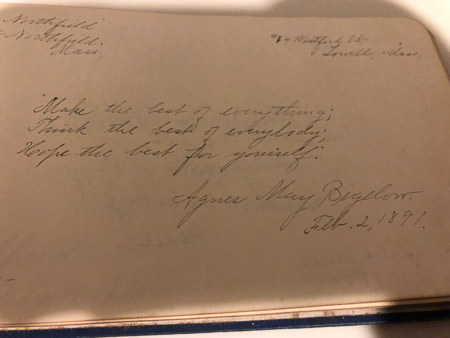 Northfield
Northfield.
Mass,
Lowell, Mass,
"Make the best of everything;
Think the best of everybody;
Hope the best for yourself."
Agnes May Bigelow.
Feb. 2, 1891.